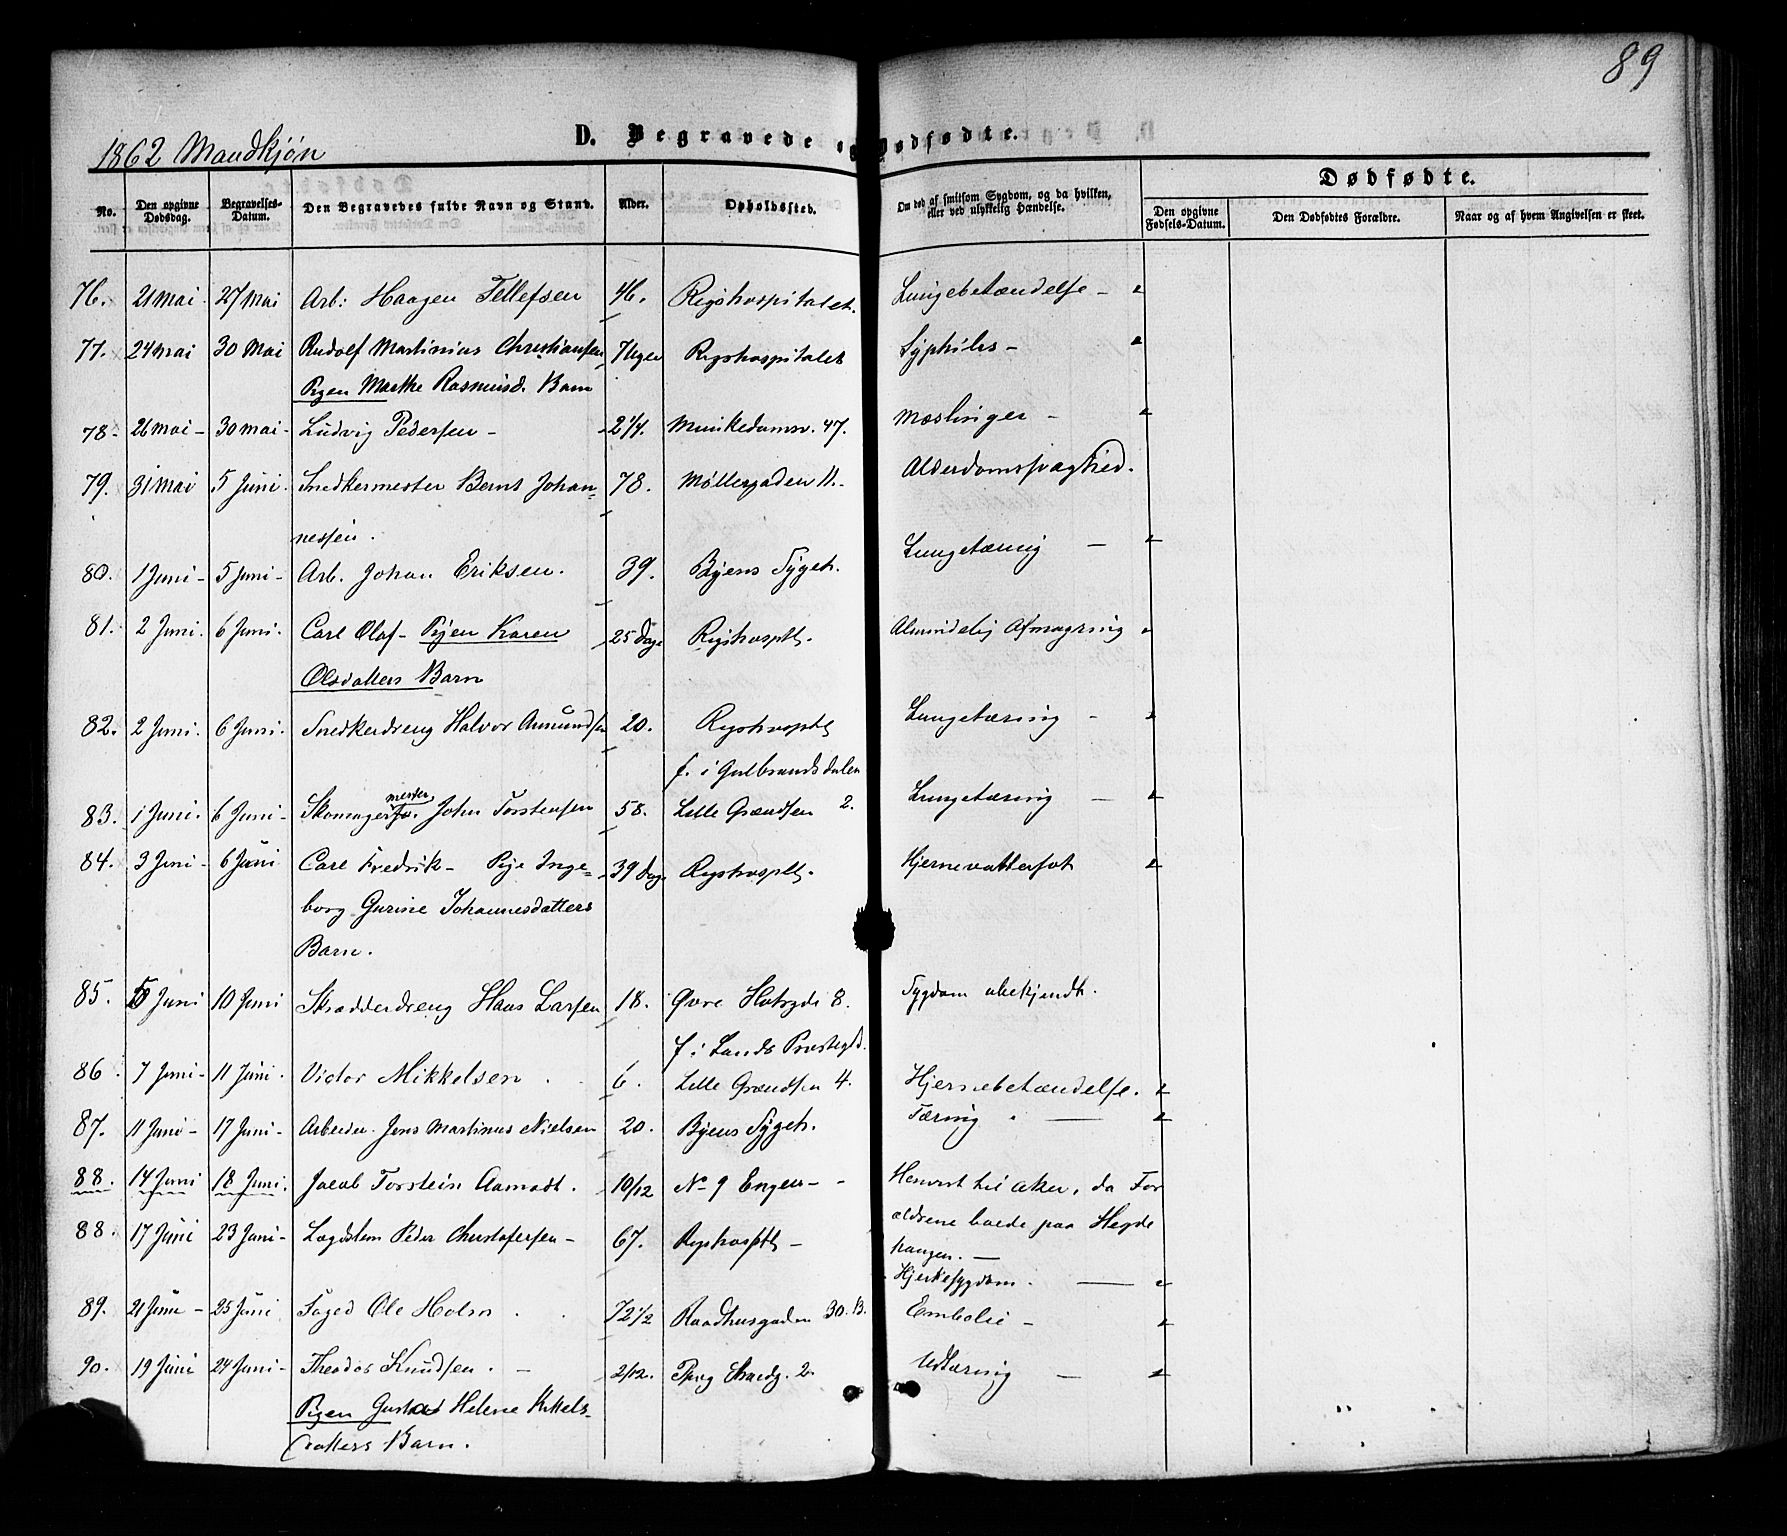 89
1862 Mandkjøn
D. Begravede og Dødfødte.
No.
Den opgivne Dødsdag.
Begravelses-Datum.
Den Begravedes fulde Navn og Stand.
Alder.
Opholdssted.
Om død af smitsom Sygdom, og da hvilken, eller ved ulykkelig Hændelse.
Dødfødte.
Den opgivne Fødsels-Datum.
Den Dødfødtes Forældre.
Naar og af hvem Angivelsen er skeet.
76. 21 Mai. 27 Mai Arb: Haagen Tellefsen 46. Rigshospitalet. Lungebetændelse -
77. 24 Mai 30 Mai Rudolf Martinius Christiansen 7 Uger Rigshospitalet Syphilis -
Pigen Marthe Rasmusd. Barn
78 - 26 Mai - 30 Mai - Ludvig Pedersen - 2 1/4. Munkedamsv. 47. Mæslinger -
79. 31 Mai 5 Juni. Snedkermester Bernt Johan- 78. Møllergaden 11. Alderdomssvaghed.
nessen.
80. 1 Juni - 5 Juni - Arb. Johan Eriksen. 39. Byens Sygeh. Lungetæring -
81. 2 Juni. 6 Juni. Carl Olaf - Pigen Karen 25 Dage Rigshosptl. Almindelig Afmagring
Olsdatters Barn
82. 2 Juni. 6 Juni. Snedkerdreng Halvor Amundsen 20. Rigshosptl Lungetæring -
f. i Gulbrandsdalen
83. 1 Juni. 6 Juni - Skomagermester John Torstensen 58. Lille Grændsen 2. Lungetæring -
84. 3 Juni - 6 Juni Carl Fredrik - Pige Inge- 39 Dage Rigshosptl. Hjernevattersot
borg Gurine Johannesdatters
Barn.
85. 5 Juni 10 Juni Skrædderdreng Hans Larsen 18. Øvre Slotsgd. 8. Sygdom ubekjendt.
f i Lands Præstegld.
86. 7 Juni - 11 Juni. Victor Mikkelsen. 6. Lille Grændsen 4. Hjernebetændelse.
87. 11 Juni - 17 Juni - Arbeider. Jens Martinus Nielsen 20. Byens Sygeh. Tæring. -
88. 14 Juni 18 Juni. Jacob Torstein Aamodt. 10/12 No 9 Engen - - Henvist til Aker, da For
ældrene boede paa Hegde
haugen. -
88. 17 Juni 23 Juni - Lægdslem Peder Christofersen - 67. Rigshosptl - Hjertesygdom. -
89. 21 Juni - 25 Juni Foged Ole Holm. 72 1/2 Raadhusgaden 30. B. Embolie -
90. 19 Juni 24 Juni - Theodor Knudsen. - 2/12. Strandg. 2. Udtæring -
Pigen Gustava Helene Kittels-
datters Barn.